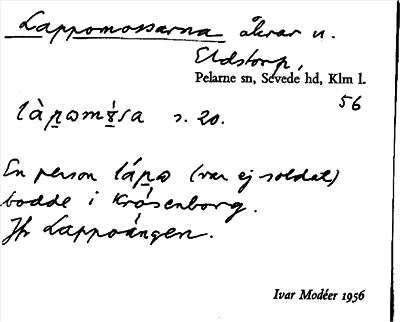 Lappomossarna åkrar u.
Eldstorp,
Pelarne sn, Sevede hd, Klm l.
56
s. 20.
En person lápo (var ej soldat)
bodde i Krösenborg.
Jfr Lappoängen.
Ivar Modéer 1956